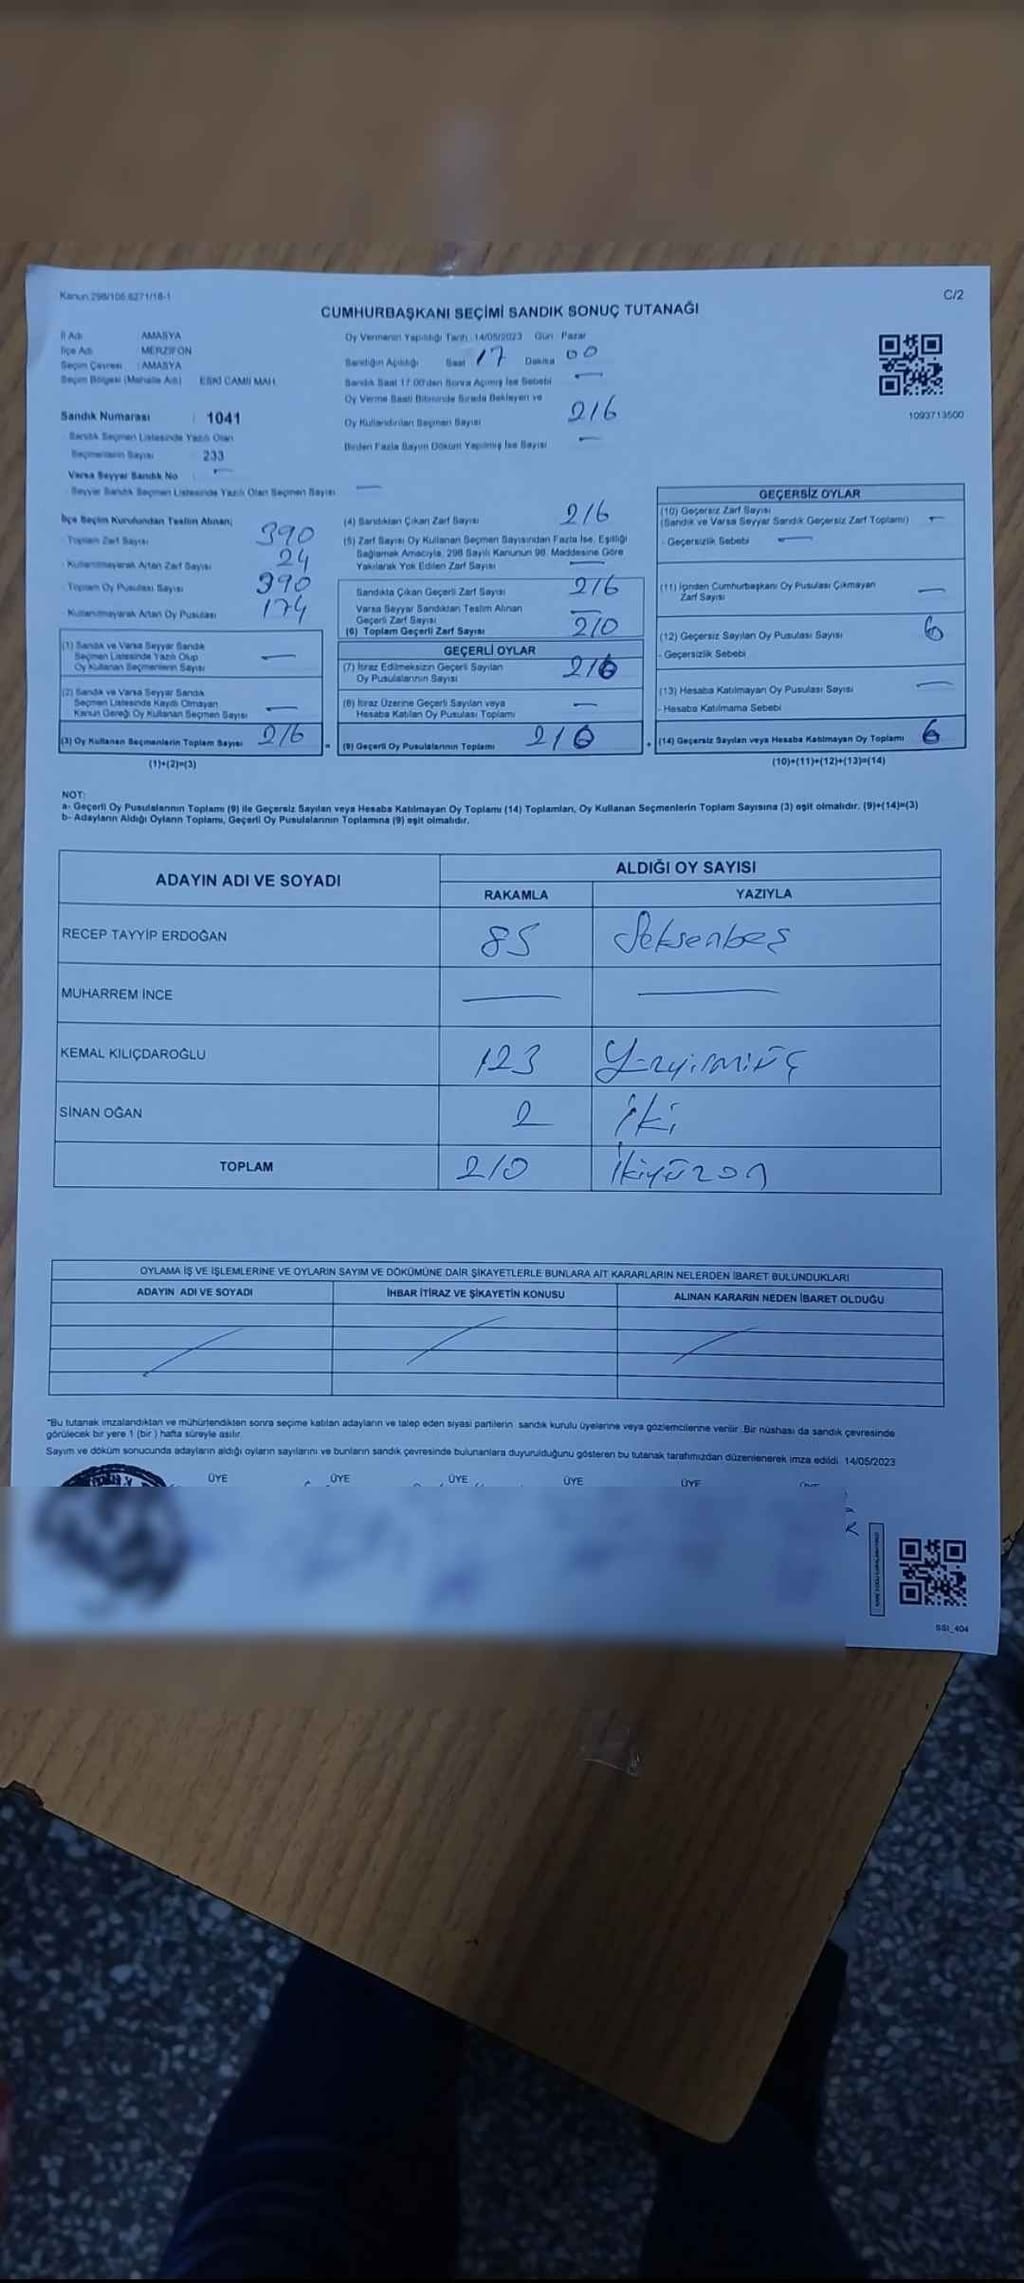 Kanun:298/105 6271/18-1
C/2
CUMHURBAŞKANI SEÇİMİ SANDIK SONUÇ TUTANAĞI
İl Adı : AMASYA
İlçe Adı : MERZİFON
Seçim Çevresi : AMASYA
Seçim Bölgesi (Mahalle Adı) : ESKİ CAMİİ MAH.
Sandık Numarası : 1041
- Sandık Seçmen Listesinde Yazılı Olan
Seçmenlerin Sayısı : 233
Varsa Seyyar Sandık No : —
- Seyyar Sandık Seçmen Listesinde Yazılı Olan Seçmen Sayısı —
Oy Vermenin Yapıldığı Tarih : 14/05/2023 Gün : Pazar
Sandığın Açıldığı Saat 17 Dakika 00
Sandık Saat 17.00'den Sonra Açılmış İse Sebebi —
Oy Verme Saati Bitiminde Sırada Bekleyen ve
Oy Kullandırılan Seçmen Sayısı 216
Birden Fazla Sayım Döküm Yapılmış İse Sayısı —
1093713500
İlçe Seçim Kurulundan Teslim Alınan;
- Toplam Zarf Sayısı 390
- Kullanılmayarak Artan Zarf Sayısı 24
- Toplam Oy Pusulası Sayısı 390
- Kullanılmayarak Artan Oy Pusulası 174
(1) Sandık ve Varsa Seyyar Sandık
Seçmen Listesinde Yazılı Olup
Oy Kullanan Seçmenlerin Sayısı —
(2) Sandık ve Varsa Seyyar Sandık
Seçmen Listesinde Kaydı Olmayan
Kanun Gereği Oy Kullanan Seçmen Sayısı —
(3) Oy Kullanan Seçmenlerin Toplam Sayısı 216
(1)+(2)=(3)
=
(4) Sandıktan Çıkan Zarf Sayısı 216
(5) Zarf Sayısı Oy Kullanan Seçmen Sayısından Fazla İse, Eşitliği
Sağlamak Amacıyla, 298 Sayılı Kanunun 98. Maddesine Göre
Yakılarak Yok Edilen Zarf Sayısı —
Sandıkta Çıkan Geçerli Zarf Sayısı 216
Varsa Seyyar Sandıktan Teslim Alınan
Geçerli Zarf Sayısı —
(6) Toplam Geçerli Zarf Sayısı 210
GEÇERLİ OYLAR
(7) İtiraz Edilmeksizin Geçerli Sayılan
Oy Pusulalarının Sayısı 210
(8) İtiraz Üzerine Geçerli Sayılan veya
Hesaba Katılan Oy Pusulası Toplamı —
(9) Geçerli Oy Pusulalarının Toplamı 210
+
GEÇERSİZ OYLAR
(10) Geçersiz Zarf Sayısı
(Sandık ve Varsa Seyyar Sandık Geçersiz Zarf Toplamı) —
- Geçersizlik Sebebi —
(11) İçinden Cumhurbaşkanı Oy Pusulası Çıkmayan
Zarf Sayısı —
(12) Geçersiz Sayılan Oy Pusulası Sayısı 6
- Geçersizlik Sebebi
(13) Hesaba Katılmayan Oy Pusulası Sayısı —
- Hesaba Katılmama Sebebi
(14) Geçersiz Sayılan veya Hesaba Katılmayan Oy Toplamı 6
(10)+(11)+(12)+(13)=(14)
NOT:
a- Geçerli Oy Pusulalarının Toplamı (9) ile Geçersiz Sayılan veya Hesaba Katılmayan Oy Toplamı (14) Toplamları, Oy Kullanan Seçmenlerin Toplam Sayısına (3) eşit olmalıdır. (9)+(14)=(3)
b- Adayların Aldığı Oyların Toplamı, Geçerli Oy Pusulalarının Toplamına (9) eşit olmalıdır.
ADAYIN ADI VE SOYADI
ALDIĞI OY SAYISI
RAKAMLA YAZIYLA
RECEP TAYYİP ERDOĞAN 85 Seksenbeş
MUHARREM İNCE — —
KEMAL KILIÇDAROĞLU 123 Yüzyirmiüç
SİNAN OĞAN 2 İki
TOPLAM 210 İkiyüzon
OYLAMA İŞ VE İŞLEMLERİNE VE OYLARIN SAYIM VE DÖKÜMÜNE DAİR ŞİKAYETLERLE BUNLARA AİT KARARLARIN NELERDEN İBARET BULUNDUKLARI
ADAYIN ADI VE SOYADI İHBAR İTİRAZ VE ŞİKAYETİN KONUSU ALINAN KARARIN NEDEN İBARET OLDUĞU
*Bu tutanak imzalandıktan ve mühürlendikten sonra seçime katılan adayların ve talep eden siyasi partilerin sandık kurulu üyelerine veya gözlemcilerine verilir. Bir nüshası da sandık çevresinde
görülecek bir yere 1 (bir) hafta süreyle asılır.
Sayım ve döküm sonucunda adayların aldığı oyların sayılarını ve bunların sandık çevresinde bulunanlara duyurulduğunu gösteren bu tutanak tarafımızdan düzenlenerek imza edildi. 14/05/2023
ÜYE ÜYE ÜYE ÜYE ÜYE
SSI_404